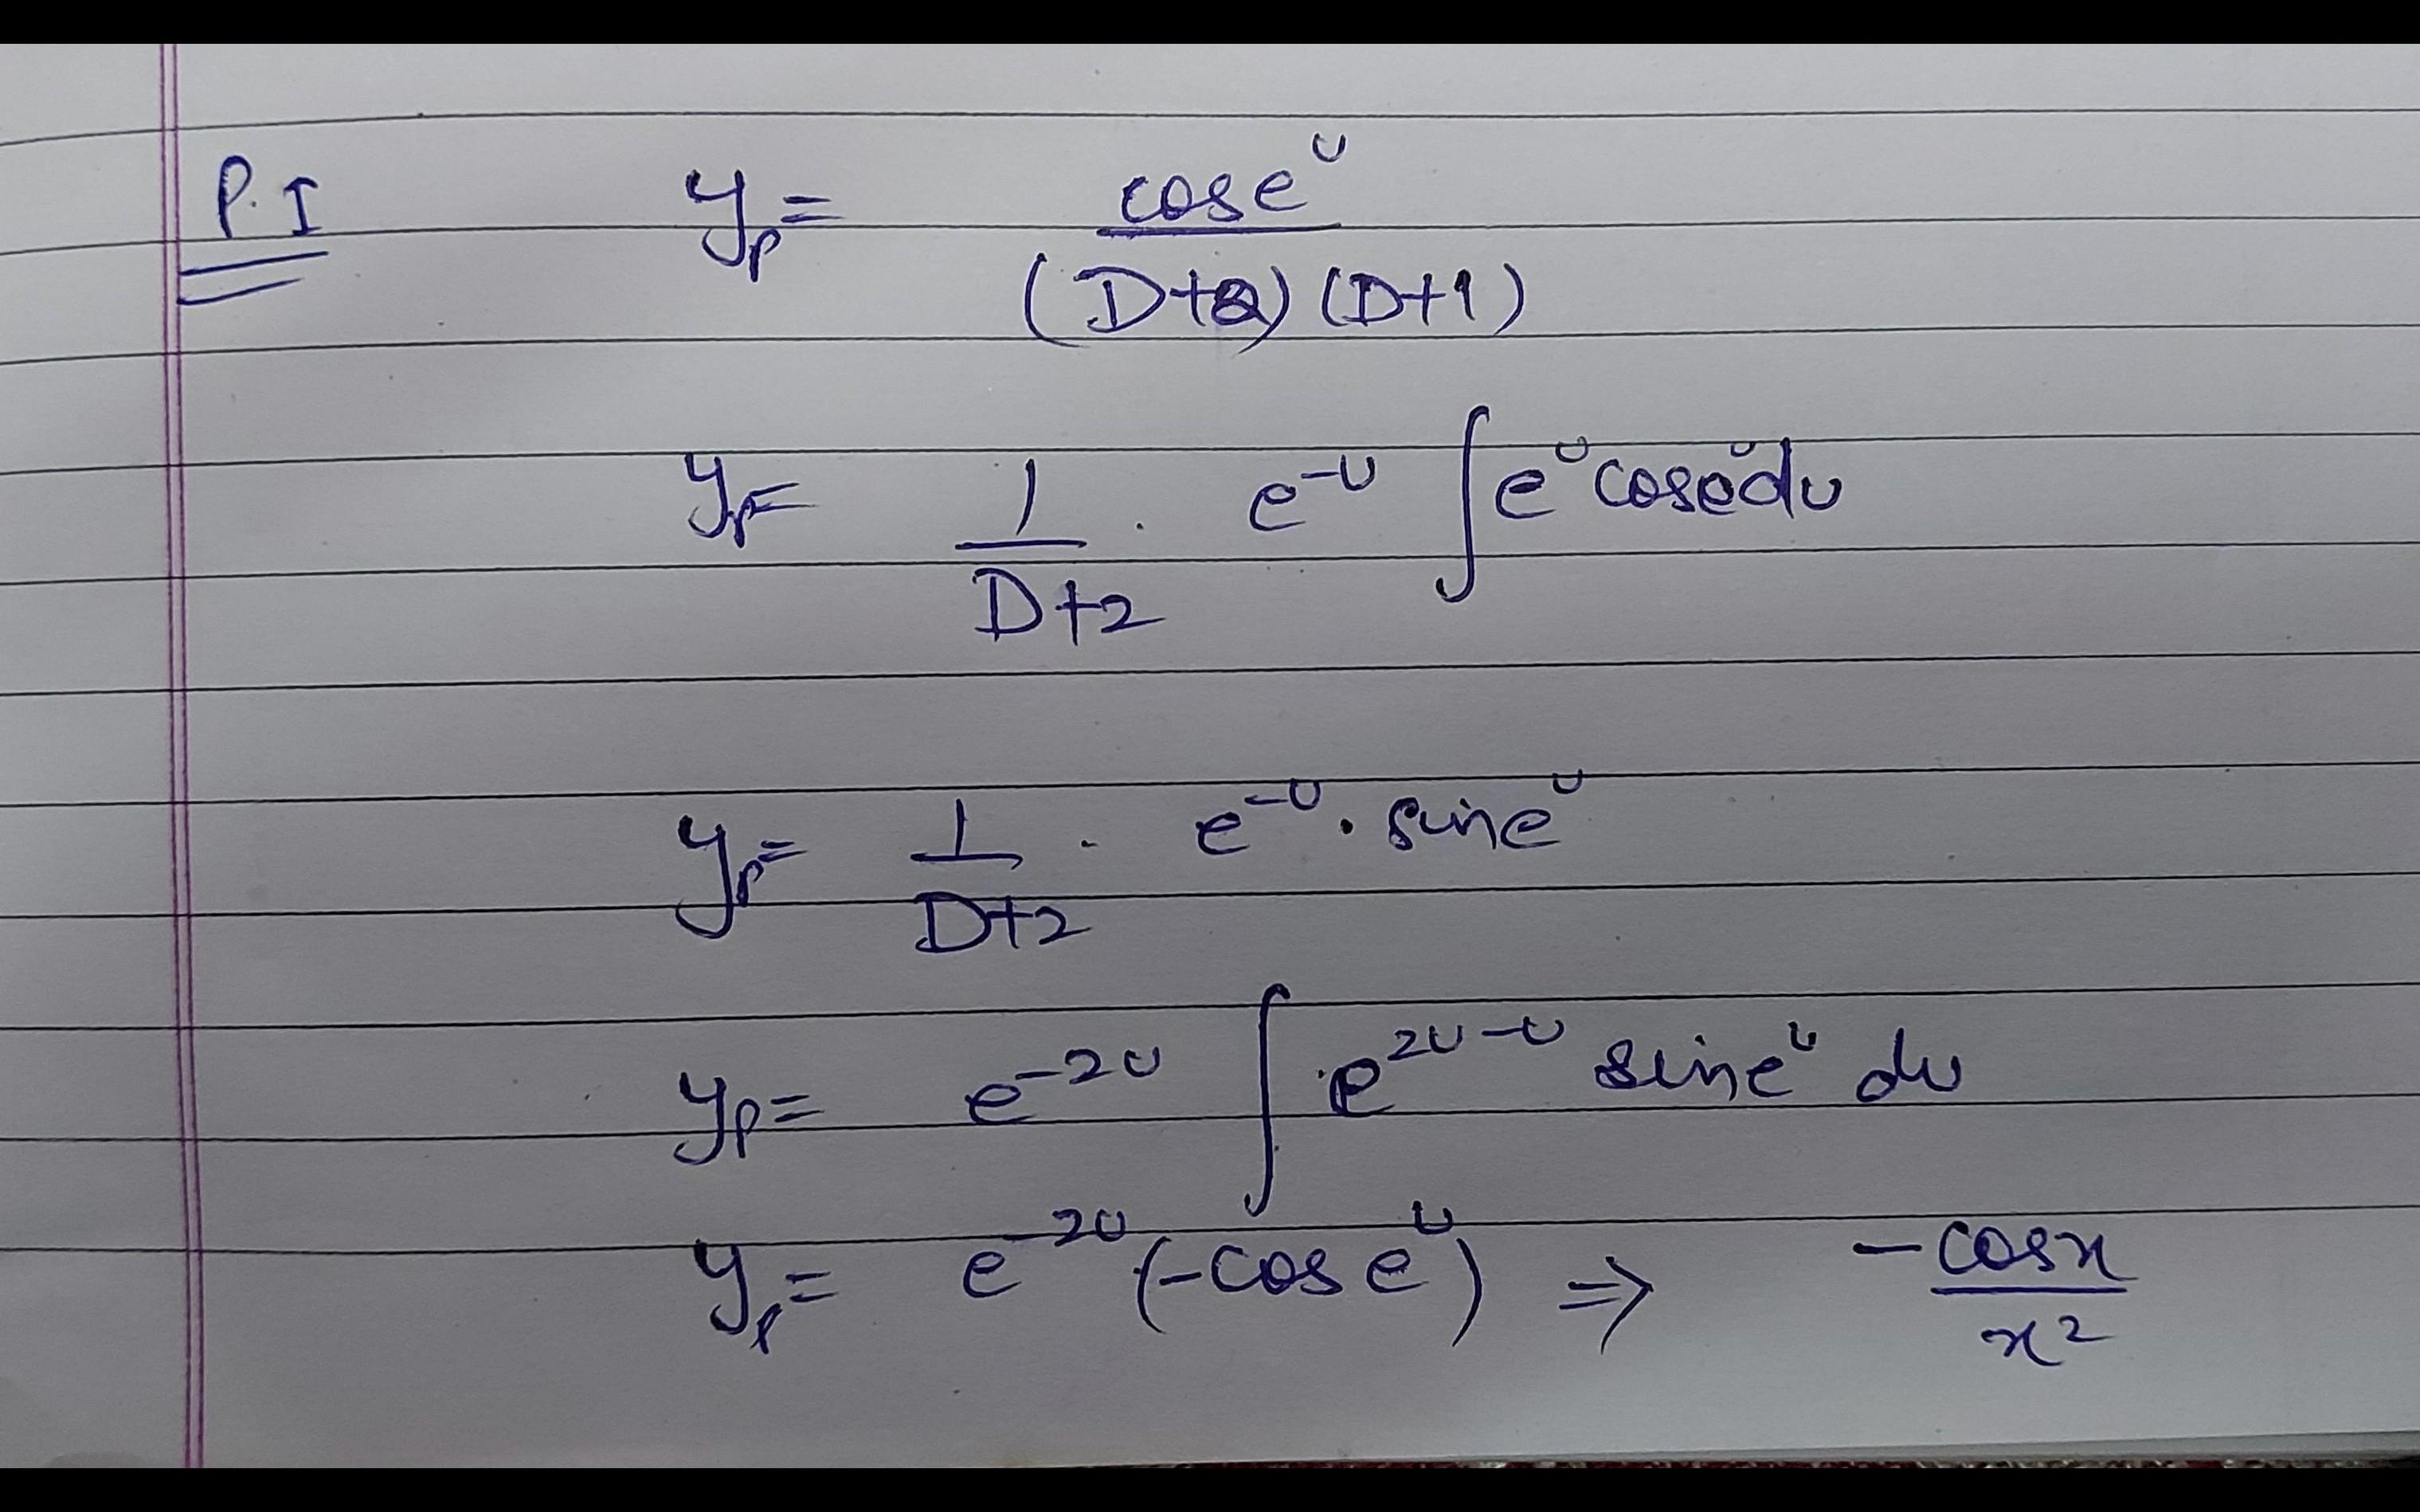 P.I y_p = cos e^u / (D+2)(D+1)
y_p = 1/(D+2) . e^-u ∫ e^u cos e^u du
y_p = 1/(D+2) . e^-u . sin e^u
y_p = e^-2u ∫ e^2u-u sin e^u du
y_p = e^-2u (-cos e^u) ⇒ -cosx / x^2